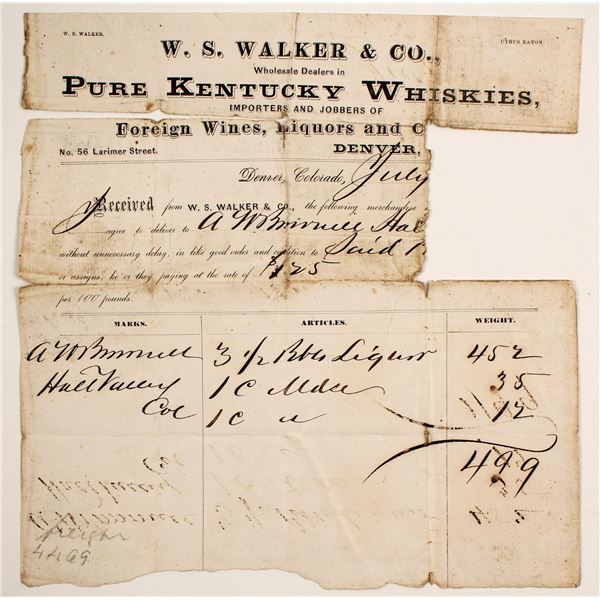 W. S. WALKER. CYRUS EATON.
W. S. WALKER & CO.,
Wholesale Dealers in
PURE KENTUCKY WHISKIES,
IMPORTERS AND JOBBERS OF
Foreign Wines, Liquors and C
No. 56 Larimer Street. DENVER,
Denver, Colorado, July
Received from W. S. WALKER & CO., the following merchandise
agree to deliver to A W Brownell Hal
without unnecessary delay, in like good order and condition to Said
or assigns, he or they paying at the rate of $1.25
per 100 pounds.
MARKS. ARTICLES. WEIGHT.
A W Brownell 3 1/2 Rbls Liquor 452
Hall Valley 1 C Mdse 35
Col 1 C " 12
499
freight
4469